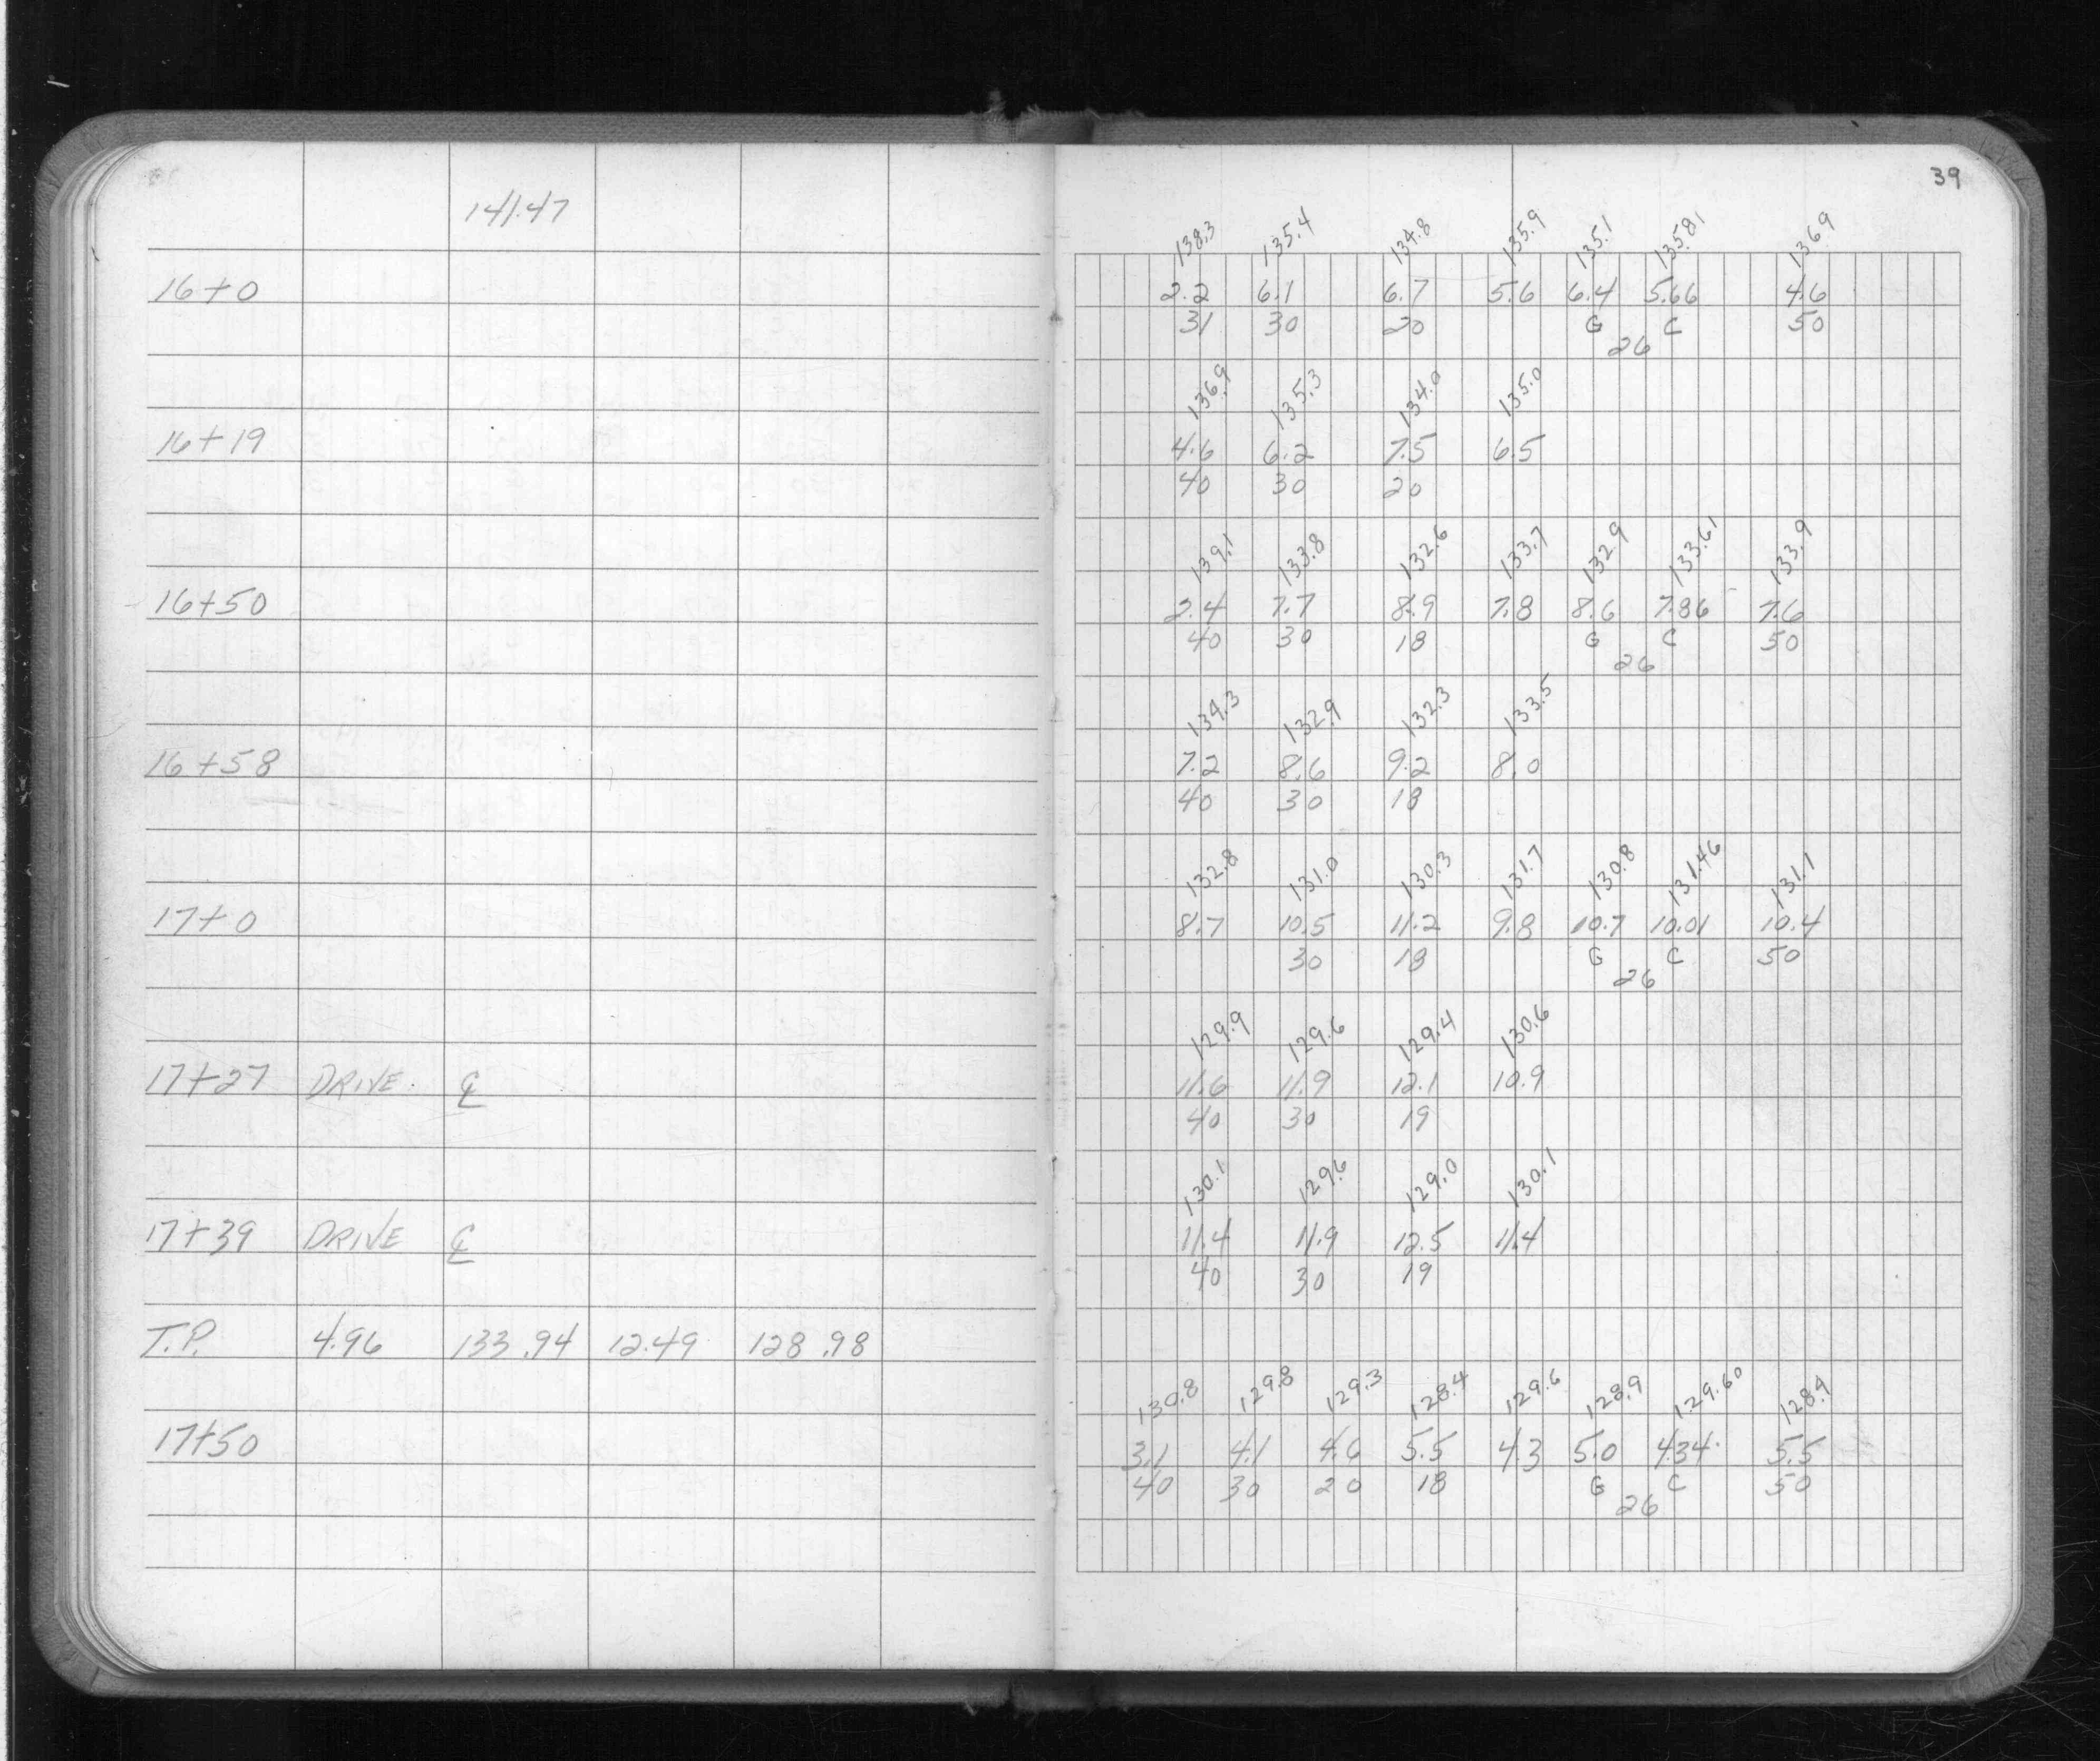 39
141.47
138.3 135.4 134.8 135.9 135.1 135.81 136.9
16+0 2.2 6.1 6.7 5.6 6.4 5.66 4.6
31 30 20 G C 50
26
136.9 135.3 134.0 135.0
16+19 4.6 6.2 7.5 6.5
40 30 20
139.1 133.8 132.6 133.7 132.9 133.61 133.9
16+50 2.4 7.7 8.9 7.8 8.6 7.86 7.6
40 30 18 G C 50
26
134.3 132.9 132.3 133.5
16+58 7.2 8.6 9.2 8.0
40 30 18
132.8 131.0 130.3 131.7 130.8 131.46 131.1
17+0 8.7 10.5 11.2 9.8 10.7 10.01 10.4
30 18 G C 50
26
129.9 129.6 129.4 130.6
17+27 DRIVE ℄ 11.6 11.9 12.1 10.9
40 30 19
130.1 129.6 129.0 130.1
17+39 DRIVE ℄ 11.4 11.9 12.5 11.4
40 30 19
T.P. 4.96 133.94 12.49 128.98
130.8 129.8 129.3 128.4 129.6 128.9 129.60 128.4
17+50 3.1 4.1 4.6 5.5 4.3 5.0 4.34 5.5
40 30 20 18 G C 50
26